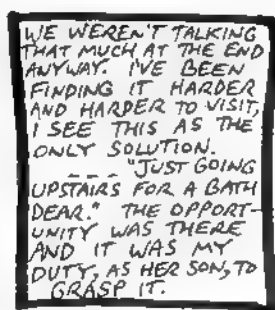 WE WEREN'T TALKING
THAT MUCH AT THE END
ANYWAY. I'VE BEEN
FINDING IT HARDER
AND HARDER TO VISIT,
I SEE THIS AS THE
ONLY SOLUTION.
--- "JUST GOING
UPSTAIRS FOR A BATH
DEAR." THE OPPORT-
UNITY WAS THERE
AND IT WAS MY
DUTY, AS HER SON, TO
GRASP IT.